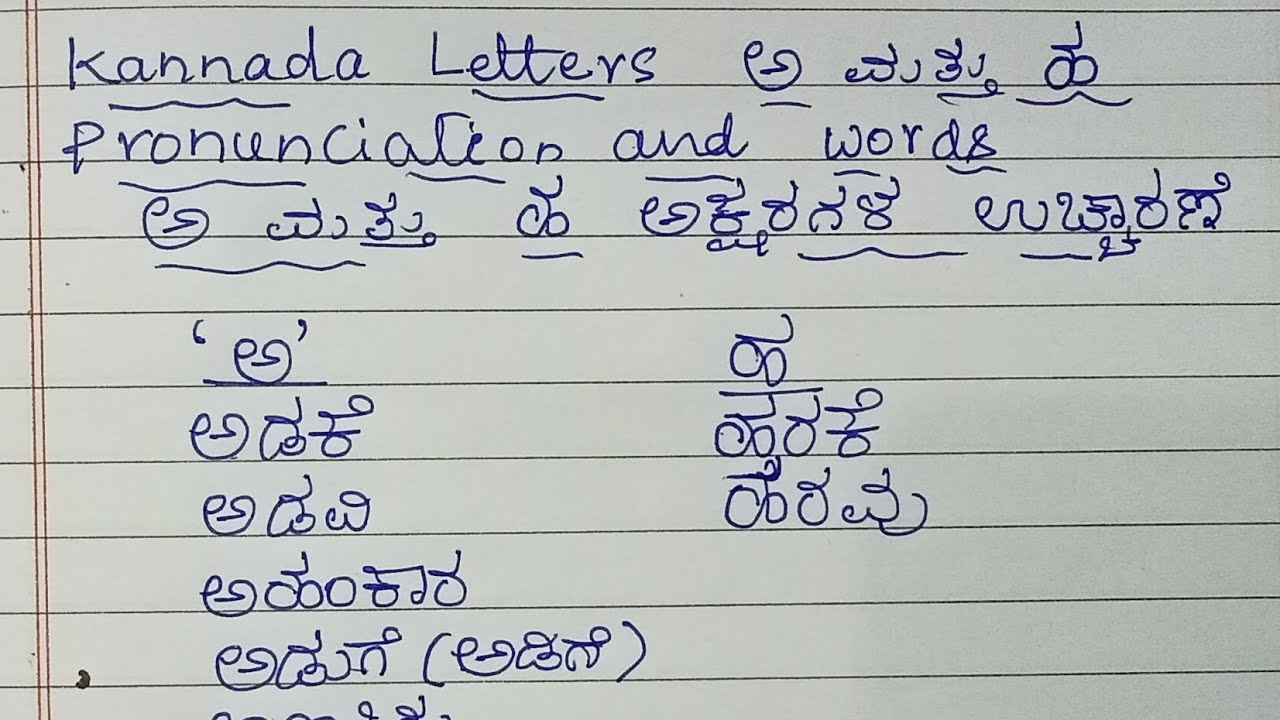 Kannada Letters ಅ ಮತ್ತು ಹ
Pronunciation and words
ಅ ಮತ್ತು ಹ ಅಕ್ಷರಗಳ ಉಚ್ಚಾರಣೆ
‘ಅ’ ಹ
ಅಡಕೆ ಹರಕೆ
ಅಡವಿ ಹರವು
ಅಹಂಕಾರ
ಅಡುಗೆ (ಅಡಿಗೆ)